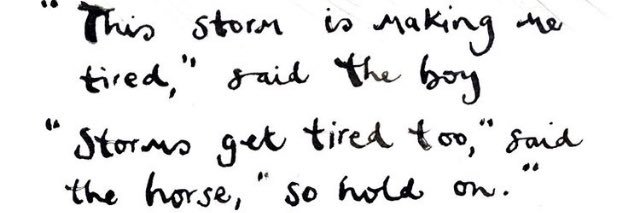 "This storm is making me
tired," said the boy
"Storms get tired too," said
the horse, "so hold on."